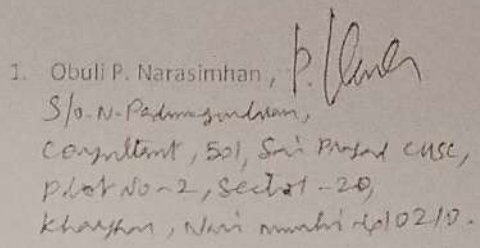 1. Obuli P. Narasimhan,
S/o. N. Padmagindhan,
Consultant, 501, Sai Prasad CHSC,
Plot No-2, Sector-20,
Kharghar, Navi Mumbai 410210.